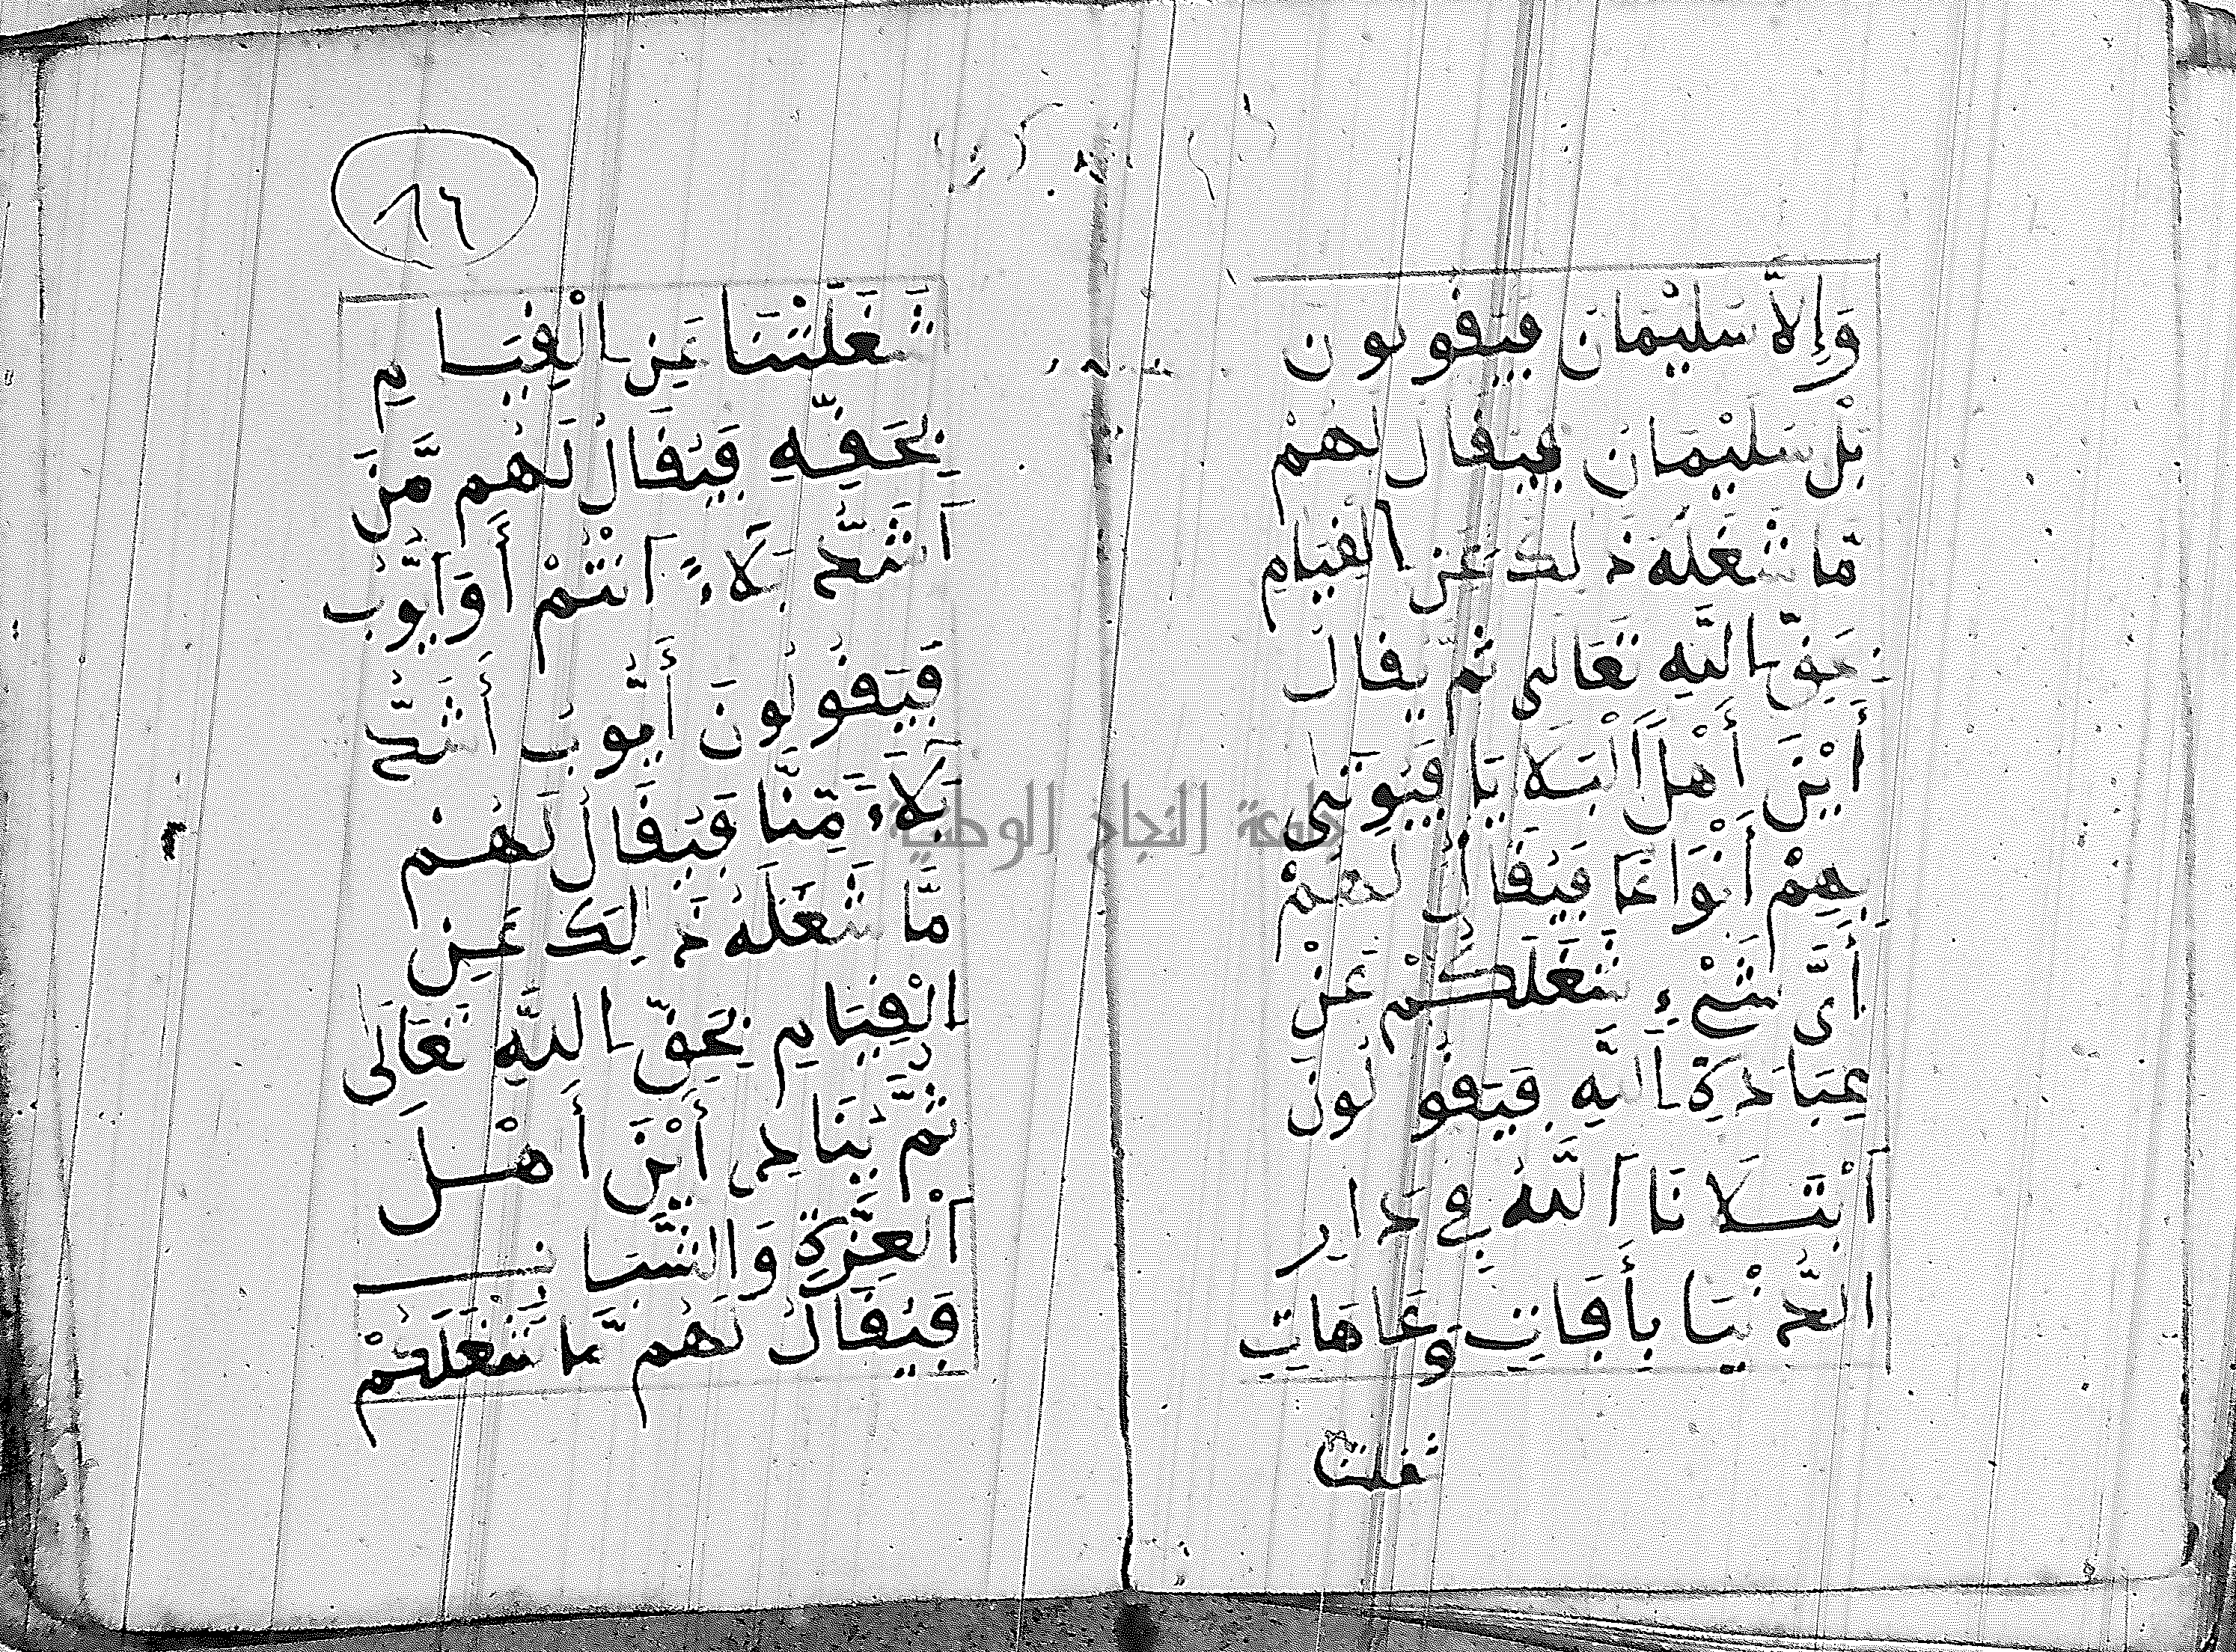 وَإِلاَّ سُلَيْمَانَ فَيَقُولُونَ
بَلْ سُلَيْمَانَ فَيُقَالُ لَهُمْ
مَّا شَغَلَهُ ذَلِكَ عَنِ الْقِيَامِ
بِحَقِّ اللَّهِ تَعَالَى ثُمَّ يُقَالُ
أَيْنَ أَهْلُ الْبَلَايَا فَيُوتَى
بِهِمْ أَنْوَاعًا فَيُقَالُ لَهُمْ
أَيُّ شَيْءٍ شَغَلَكُمْ عَنْ
عِبَادَةِ اللَّهِ فَيَقُولُونَ
ابْتَلَانَا اللَّهُ فِي دَارِ
الدُّنْيَا بِأَفَاتٍ وَعَاهَاتٍ
شغلتنا
١٦
شَغَلَتْنَا عَنِ الْقِيَامِ
بِحَقِّهِ فَيُقَالُ لَهُم مَّنَ
اَشَدُّ بَلَاءً اَنتُمْ أَوَ ايُّوبُ
فَيَقُولُونَ أَيُّوبُ أَشَدُّ
بَلَاءً مِّنَّا فَيُقَالُ لَهُمْ
مَّا شَغَلَهُ ذَلِكَ عَنِ
الْقِيَامِ بِحَقِّ اللَّهِ تَعَالَى
ثُمَّ يُنَادِى أَيْنَ أَهْلُ
الْعِزَّةِ وَالشَّبَابِ
فَيُقَالُ لَهُم مَّا شَغَلَكُمْ
جامعة النجاح الوطنية